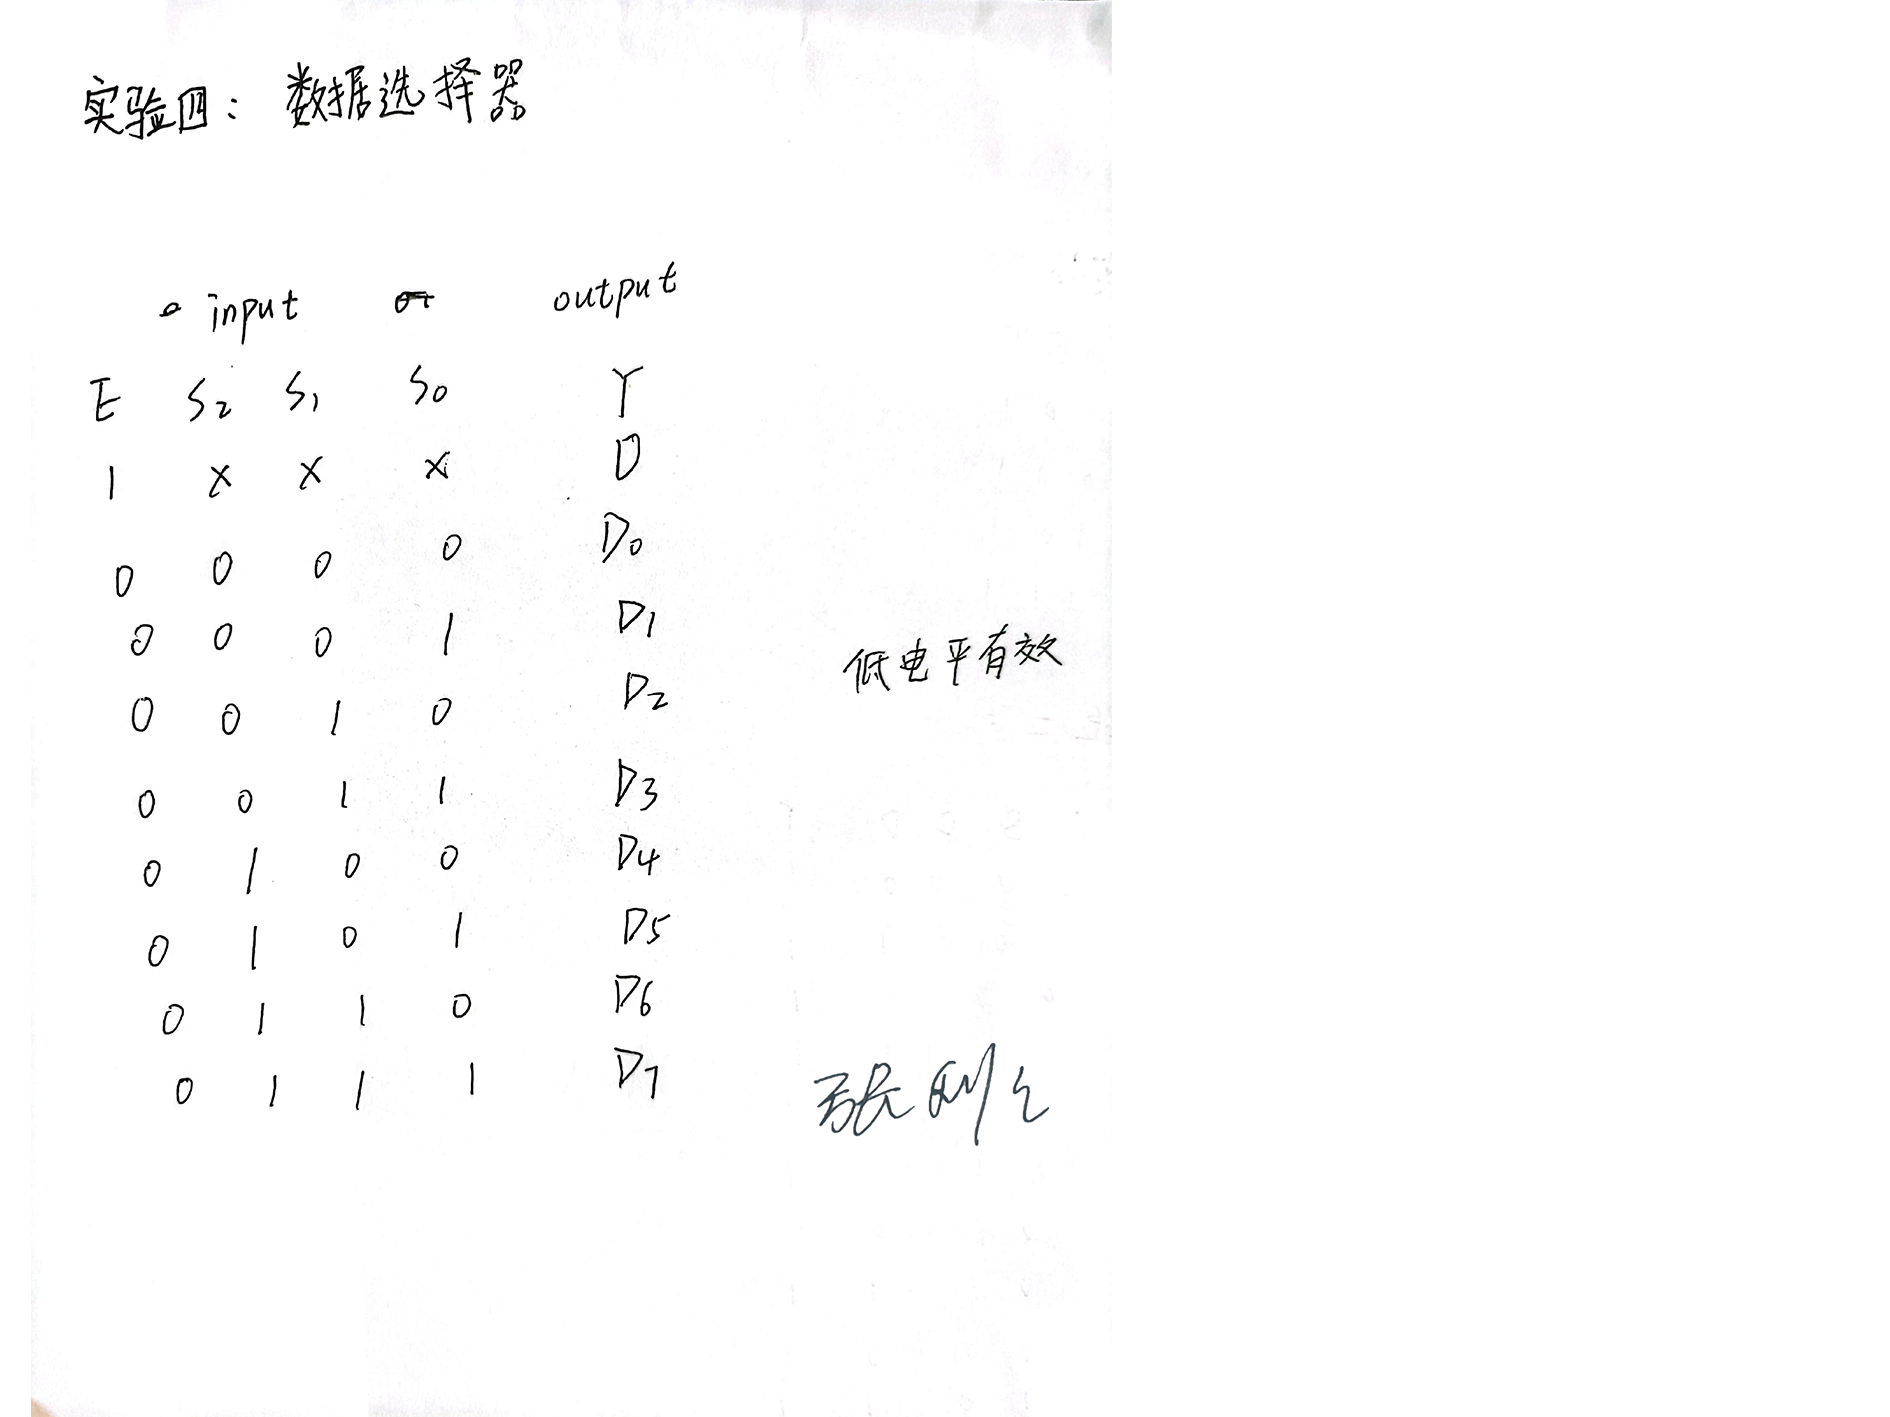 实验四：数据选择器
input output
E S2 S1 S0 Y
1 X X X 0
0 0 0 0 D0
0 0 0 1 D1
低电平有效
0 0 1 0 D2
0 0 1 1 D3
0 1 0 0 D4
0 1 0 1 D5
0 1 1 0 D6
0 1 1 1 D7